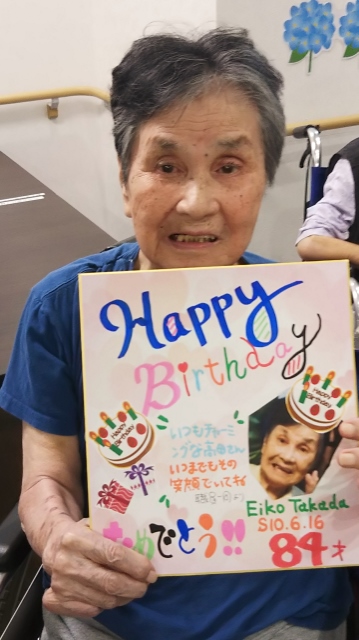 Happy
Birthday
HAPPY
Birthday
HAPPY
Birthday
いつもチャーミ
ングな高田さん
いつまでもその
笑顔でいてね
Eiko Takada
S10.6.16
84才
おめでとう!!